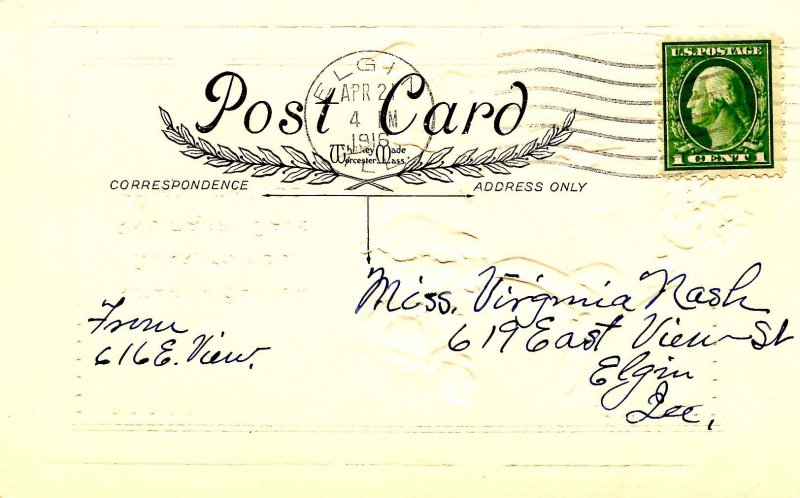 Post Card
ELGIN
APR 2
4 M
1916
ILL
Whitney Made
Worcester, Mass.
U.S. POSTAGE
1 CENT 1
CORRESPONDENCE
ADDRESS ONLY
From
616 E. View.
Miss. Virginia Nash
619 East View St
Elgin
Ill,